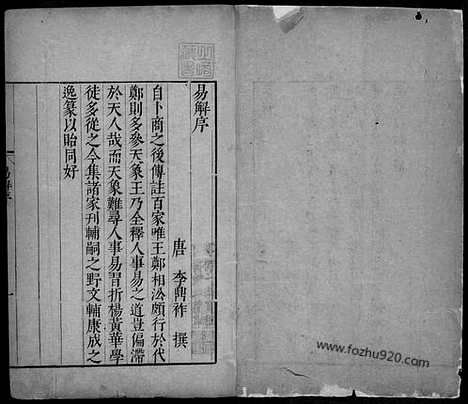 易解序
唐 李鼎祚 撰
自卜商之後傳註百家唯王鄭相沿頗行於代
鄭則多參天象王乃全釋人事易之道豈偏滯
於天人哉而天象難尋人事易習折楊黃華學
徒多從之今集諸家刋輔嗣之野文輔康成之
逸篆以貽同好
www.fozhu920.com